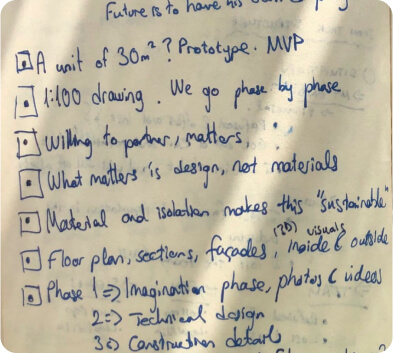 Future is to have his own
A unit of 30m²? Prototype. MVP
1:100 drawing. We go phase by phase
Willing to partner, matters,
What matters is design, not materials
Material and isolation makes this "sustainable"
(3D) visuals
Floor plan, sections, façades, inside & outside
Phase 1 => Imagination phase, photos & videos
2 => Technical design
3 => Construction details